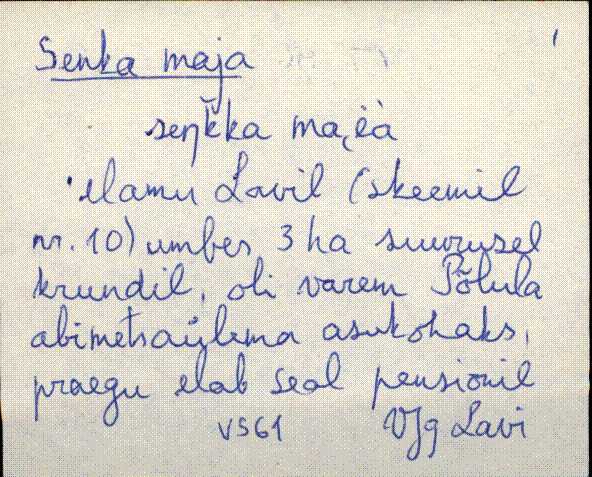 1
Senka maja
seŋk̆ka ma,i̯ȧ̀
elamu Lavil (skeemil
nr. 10) umbes 3 ha suurusel
krundil, oli varem Põlula
abimetsaülema asukohaks,
praegu elab seal pensionil
VJg Lavi